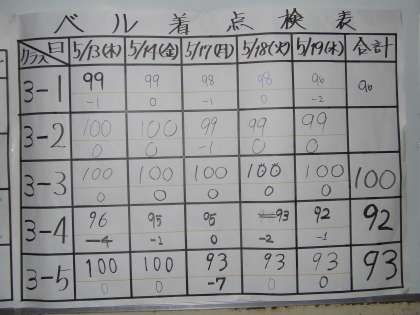 ベル着点検表
クラス 日 5/13(木) 5/14(金) 5/17(月) 5/18(火) 5/19(水) 合計
3-1 99 99 98 98 96 96
-1 0 -1 0 -2
3-2 100 100 99 99 99
0 0 -1 0 0
3-3 100 100 100 100 100 100
0 0 0 0 0
3-4 96 95 95 93 92 92
-4 -1 0 -2 -1
3-5 100 100 93 93 93 93
0 0 -7 0 0